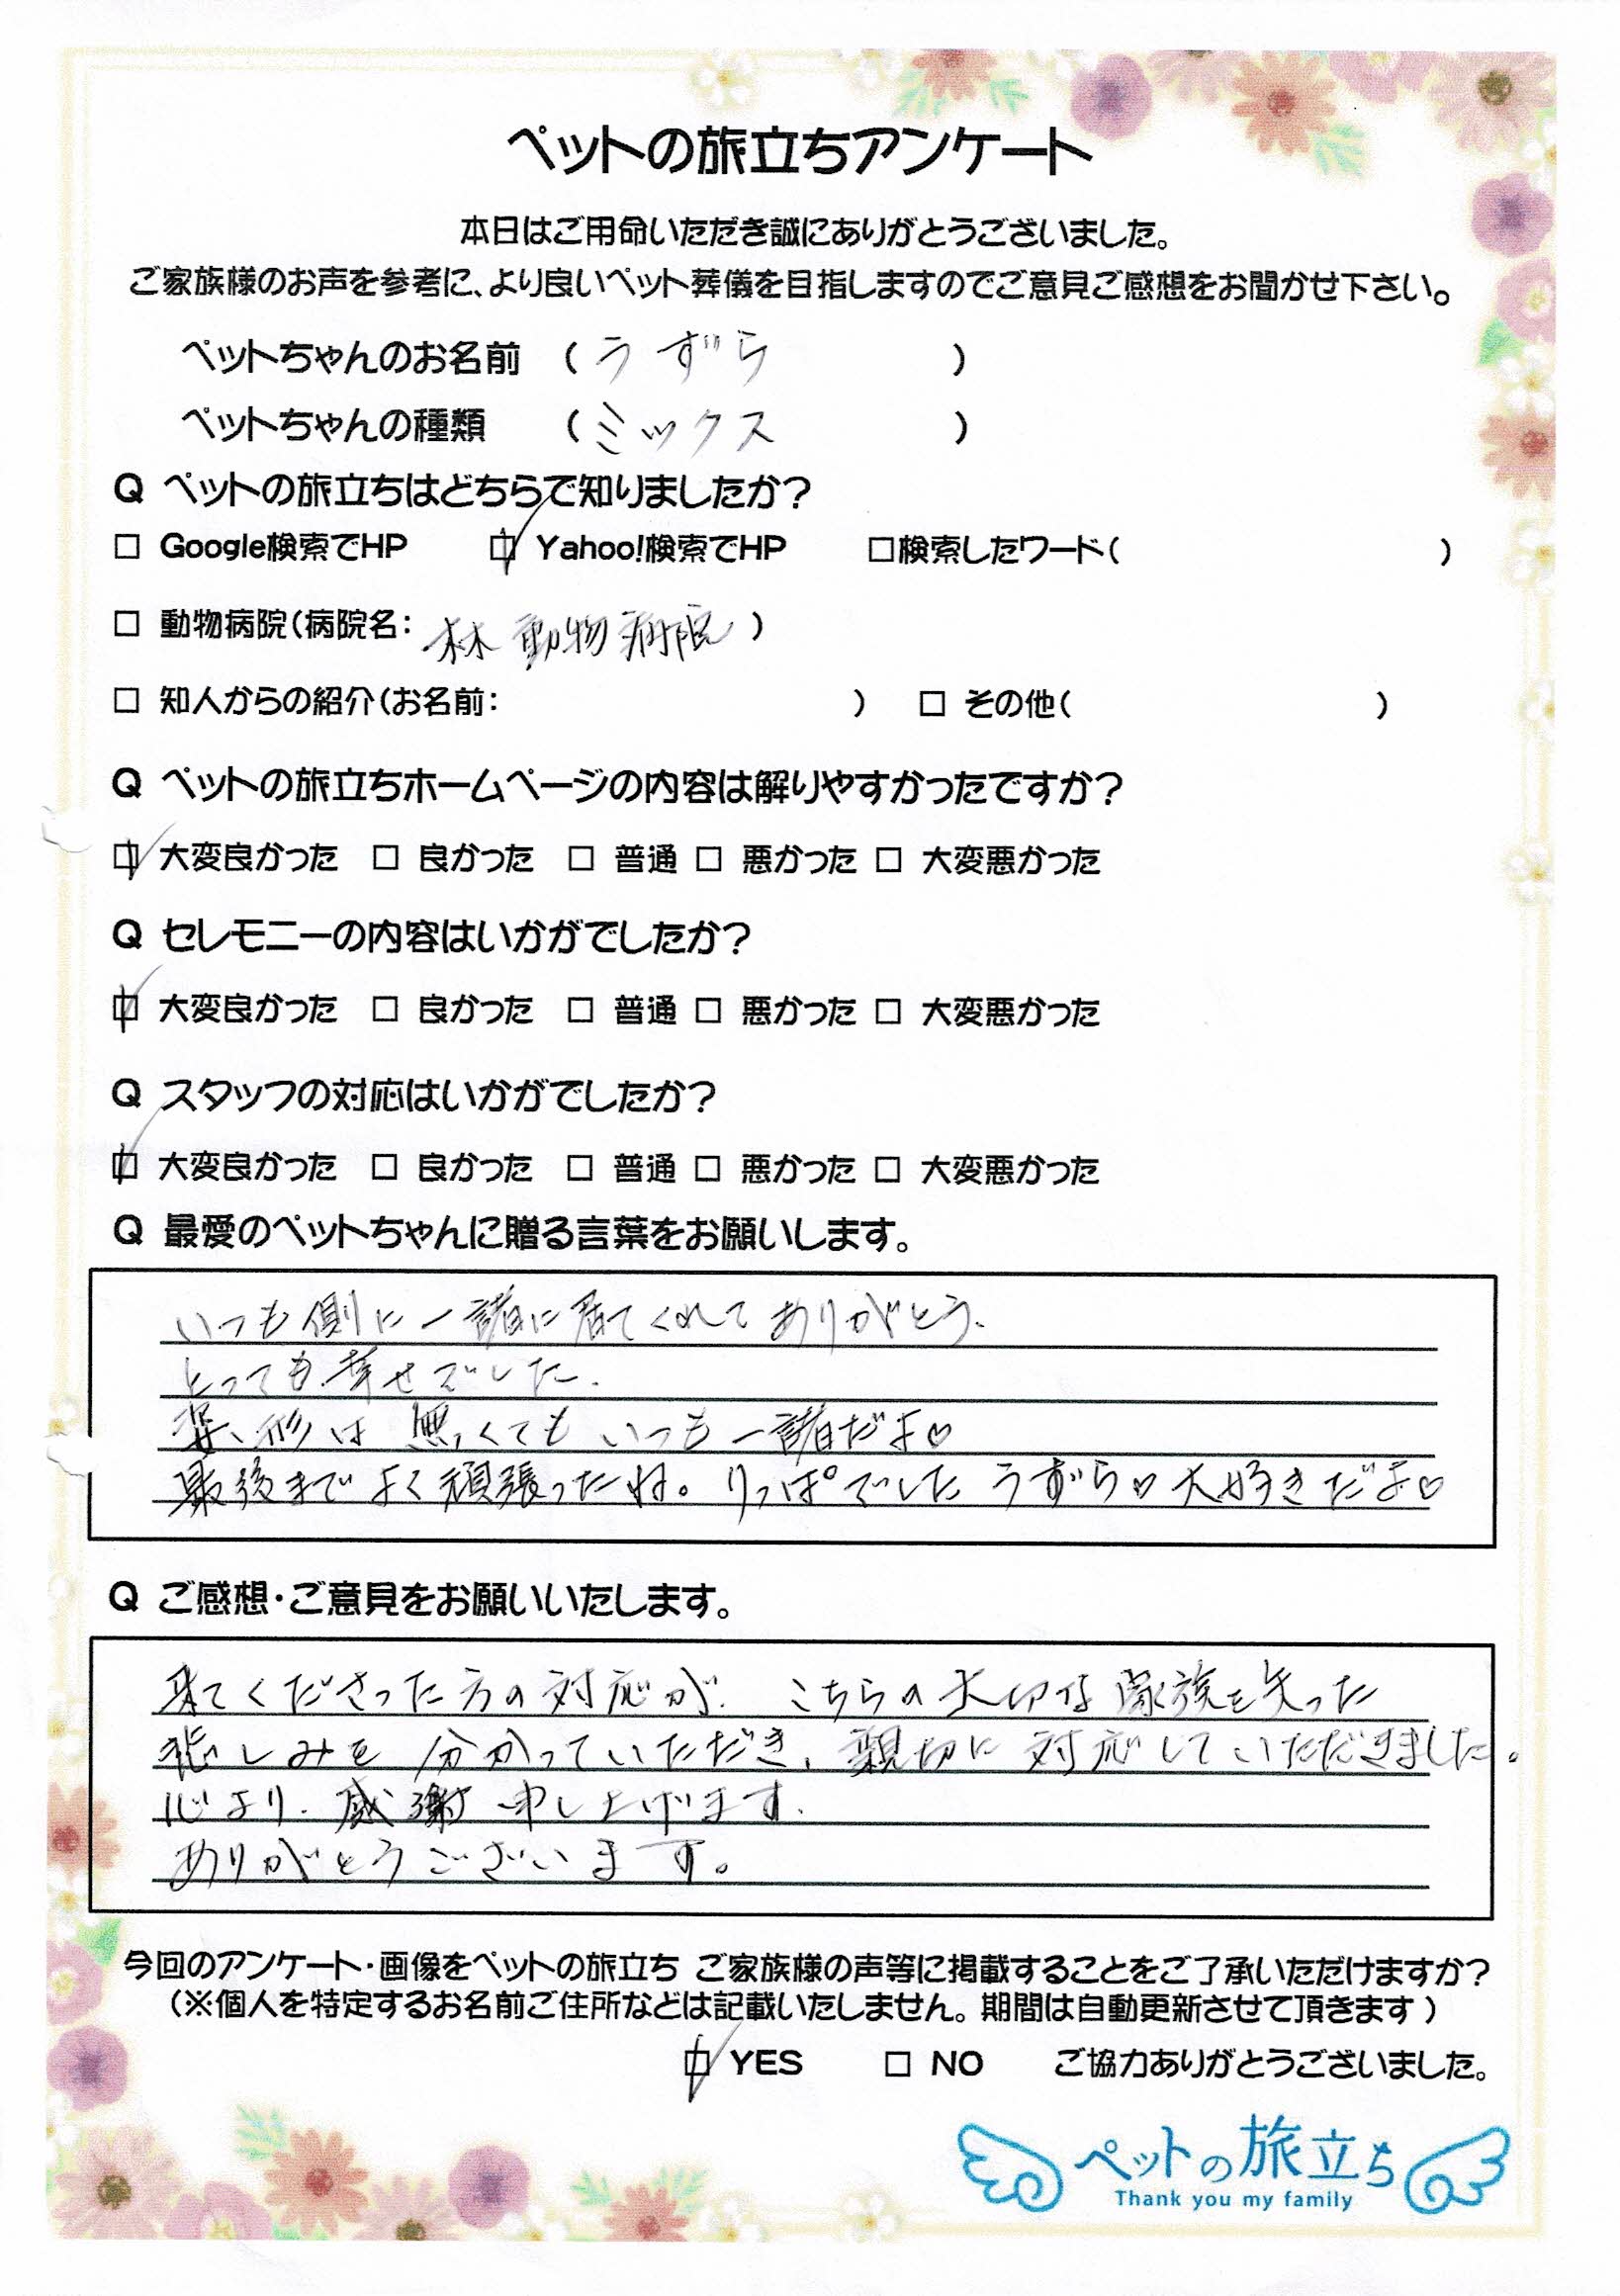 ペットの旅立ちアンケート
本日はご用命いただき誠にありがとうございました。
ご家族様のお声を参考に、より良いペット葬儀を目指しますのでご意見ご感想をお聞かせ下さい。
ペットちゃんのお名前 ( うずら )
ペットちゃんの種類 ( ミックス )
Q ペットの旅立ちはどちらで知りましたか?
□ Google検索でHP ☑ Yahoo!検索でHP □検索したワード( )
□ 動物病院(病院名: 森動物病院 )
□ 知人からの紹介(お名前: ) □ その他( )
Q ペットの旅立ちホームページの内容は解りやすかったですか?
☑ 大変良かった □ 良かった □ 普通 □ 悪かった □ 大変悪かった
Q セレモニーの内容はいかがでしたか?
☑ 大変良かった □ 良かった □ 普通 □ 悪かった □ 大変悪かった
Q スタッフの対応はいかがでしたか?
☑ 大変良かった □ 良かった □ 普通 □ 悪かった □ 大変悪かった
Q 最愛のペットちゃんに贈る言葉をお願いします。
いつも側に一諸に居てくれてありがとう.
とっても幸せでした.
姿、形は無くてもいつも一諸だよ♡
最後までよく頑張ったね。りっぱでしたうずら♡大好きだよ♡
Q ご感想・ご意見をお願いいたします。
来てくださった方の対応が、こちらの大切な家族を失った
悲しみを分かっていただき、親切に対応していただきました。
心より、感謝申し上げます.
ありがとうございます。
今回のアンケート・画像をペットの旅立ち ご家族様の声等に掲載することをご了承いただけますか?
(※個人を特定するお名前ご住所などは記載いたしません。期間は自動更新させて頂きます)
☑ YES □ NO ご協力ありがとうございました。
ペットの旅立ち
Thank you my family